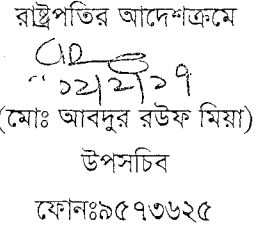 রাষ্ট্রপতির আদেশক্রমে
১২/২/১৭
(মোঃ আবদুর রউফ মিয়া)
উপসচিব
ফোনঃ৯৫৭৩৬২৫